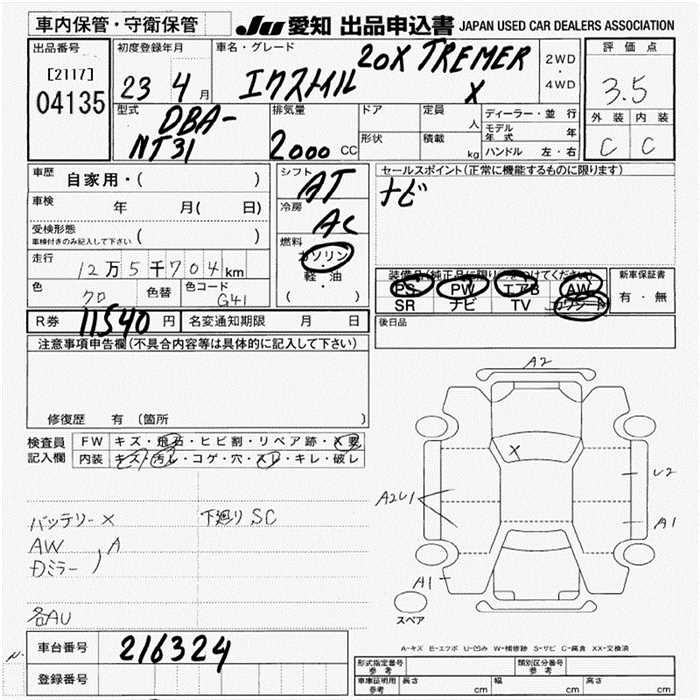 車内保管・守衛保管
JU 愛知 出品申込書 JAPAN USED CAR DEALERS ASSOCIATION
出品番号
[2117]
04135
初度登録年月
23 4 月
車名・グレード
エクストレイル 20X TREMER X
2WD
・
4WD
評価点
3.5
外装 内装
C C
型式
DBA-
NT31
排気量
2000 CC
ドア
形状
定員 人
積載 kg
ディーラー・並行
モデル年式 年
ハンドル 左・右
車歴 自家用・( )
車検 年 月( 日)
受検形態 ( )
車検付きのみ記入して下さい
走行 12万5千704km
色 クロ 色替 色コード G41
R券 11540 円 名変通知期限 月 日
シフト AT
冷房 AC
燃料
ガソリン
・
軽・油
( ・ )
セールスポイント(正常に機能するものに限ります)
ナビ
装備品(純正品に限り○をつけてください)
PS PW エアB AW
SR ナビ TV カワシート
新車保証書
有・無
後日品
注意事項申告欄(不具合内容等は具体的に記入して下さい)
修復歴 有(箇所 )
検査員記入欄
FW キズ・飛石・ヒビ割・リペア跡・X要
内装 キズ・汚レ・コゲ・穴・スレ・キレ・破レ
バッテリーX 下廻りSC
AW A
Dミラー
各AU
A2
X
A2U1
U2
A1
A1
スペア
A-キズ E-エクボ U-凹み W-補修跡 S-サビ C-腐食 XX-交換済
車台番号 216324
登録番号
形式指定番号 参考
類別区分番号 参考
車庫証明用 参考 長さ cm 幅 cm 高さ cm